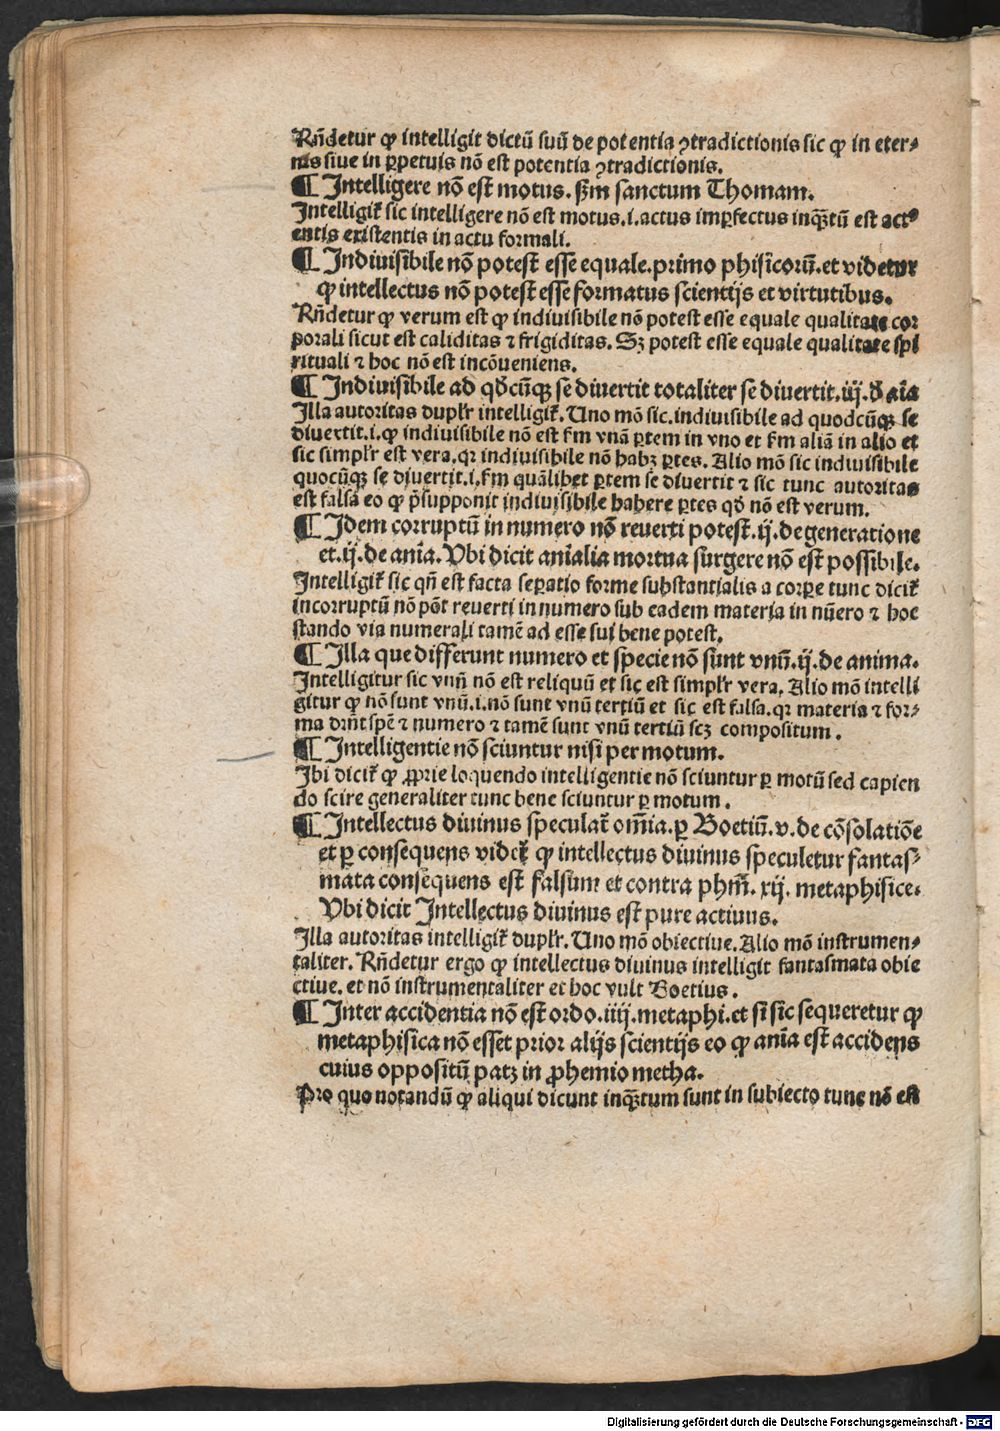 Rñdetur ꝙ intelligit dictū suū de potentia ꝯtradictionis sic ꝙ in eter⸗
nis siue in ꝑpetuis nō est potentia ꝯtradictionis.
¶ Intelligere nō est motus. ẜm sanctum Thomam.
Intelligit̃ sic intelligere nō est motus .i. actus imꝑfectus inqᷓtū est actꝰ
entis existentis in actu formali.
¶ Indiuisibile nō potest esse equale. primo phisicoꝝ. et videtur
ꝙ intellectus nō potest esse formatus scientijs et virtutibus.
Rñdetur ꝙ verum est ꝙ indiuisibile nō potest esse equale qualitate cor
porali sicut est caliditas ⁊ frigiditas. Sꝫ potest esse equale qualitate spi
rituali ⁊ hoc nō est incōueniens.
¶ Indiuisibile ad qd̓cūqꝫ se diuertit totaliter se diuertit. iij. d̓ aīa
Illa autoritas duplr̃ intelligit̃. Uno mō sic. indiuisibile ad quodcūqꝫ se
diuertit .i. ꝙ indiuisibile nō est ẜm vnā ꝑtem in vno et ẜm aliā in alio et
sic simplr̃ est vera. qꝛ indiuisibile nō habꝫ ꝑtes. Alio mō sic indiuisibile
quocūqꝫ se diuertit .i. ẜm quālibet ꝑtem se diuertit ⁊ sic tunc autoritas
est falsa eo ꝙ p̄supponit indiuisibile habere ꝑtes qd̓ nō est verum.
¶ Idem corruptū in numero nō reuerti potest. ij. de generatione
et .ij. de aīa. Vbi dicit aīalia mortua surgere nō est possibile.
Intelligit̃ sic qñ est facta seꝑatio forme substantialis a corꝑe tunc dicit̃
incorruptū nō pōt reuerti in numero sub eadem materia in nūero ⁊ hoc
stando via numerali tamē ad esse sui bene potest.
¶ Illa que differunt numero et specie nō sunt vnū. ij. de anima.
Intelligitur sic vnū nō est reliquū et sic est simplr̃ vera. Alio mō intelli
gitur ꝙ nō sunt vnū .i. nō sunt vnū tertiū et sic est falsa. qꝛ materia ⁊ for⸗
ma drñt spē ⁊ numero ⁊ tamē sunt vnū tertiū scꝫ compositum.
¶ Intelligentie nō sciuntur nisi per motum.
Ibi dicit̃ ꝙ ꝓprie loquendo intelligentie nō sciuntur ꝑ motū sed capien
do scire generaliter tunc bene sciuntur ꝑ motum.
¶ Intellectus diuinus speculat̃ om̄ia. ꝑ Boetiū. v. de cōsolatiōe
et ꝑ consequens videt̃ ꝙ intellectus diuinus speculetur fantas⸗
mata consequens est falsum et contra phm̄. xij. metaphisice.
Vbi dicit Intellectus diuinus est pure actiuus.
Illa autoritas intelligit̃ duplr̃. Uno mō obiectiue. Alio mō instrumen⸗
taliter. Rñdetur ergo ꝙ intellectus diuinus intelligit fantasmata obie
ctiue. et nō instrumentaliter et hoc vult Boetius.
¶ Inter accidentia nō est ordo. iiij. metaphi. et si sic sequeretur ꝙ
metaphisica nō esset prior alijs scientijs eo ꝙ aīa est accidens
cuius oppositū patꝫ in ꝓhemio metha.
Pro quo notandū ꝙ aliqui dicunt inqᷓtum sunt in subiecto tunc nō est
Digitalisierung gefördert durch die Deutsche Forschungsgemeinschaft - DFG